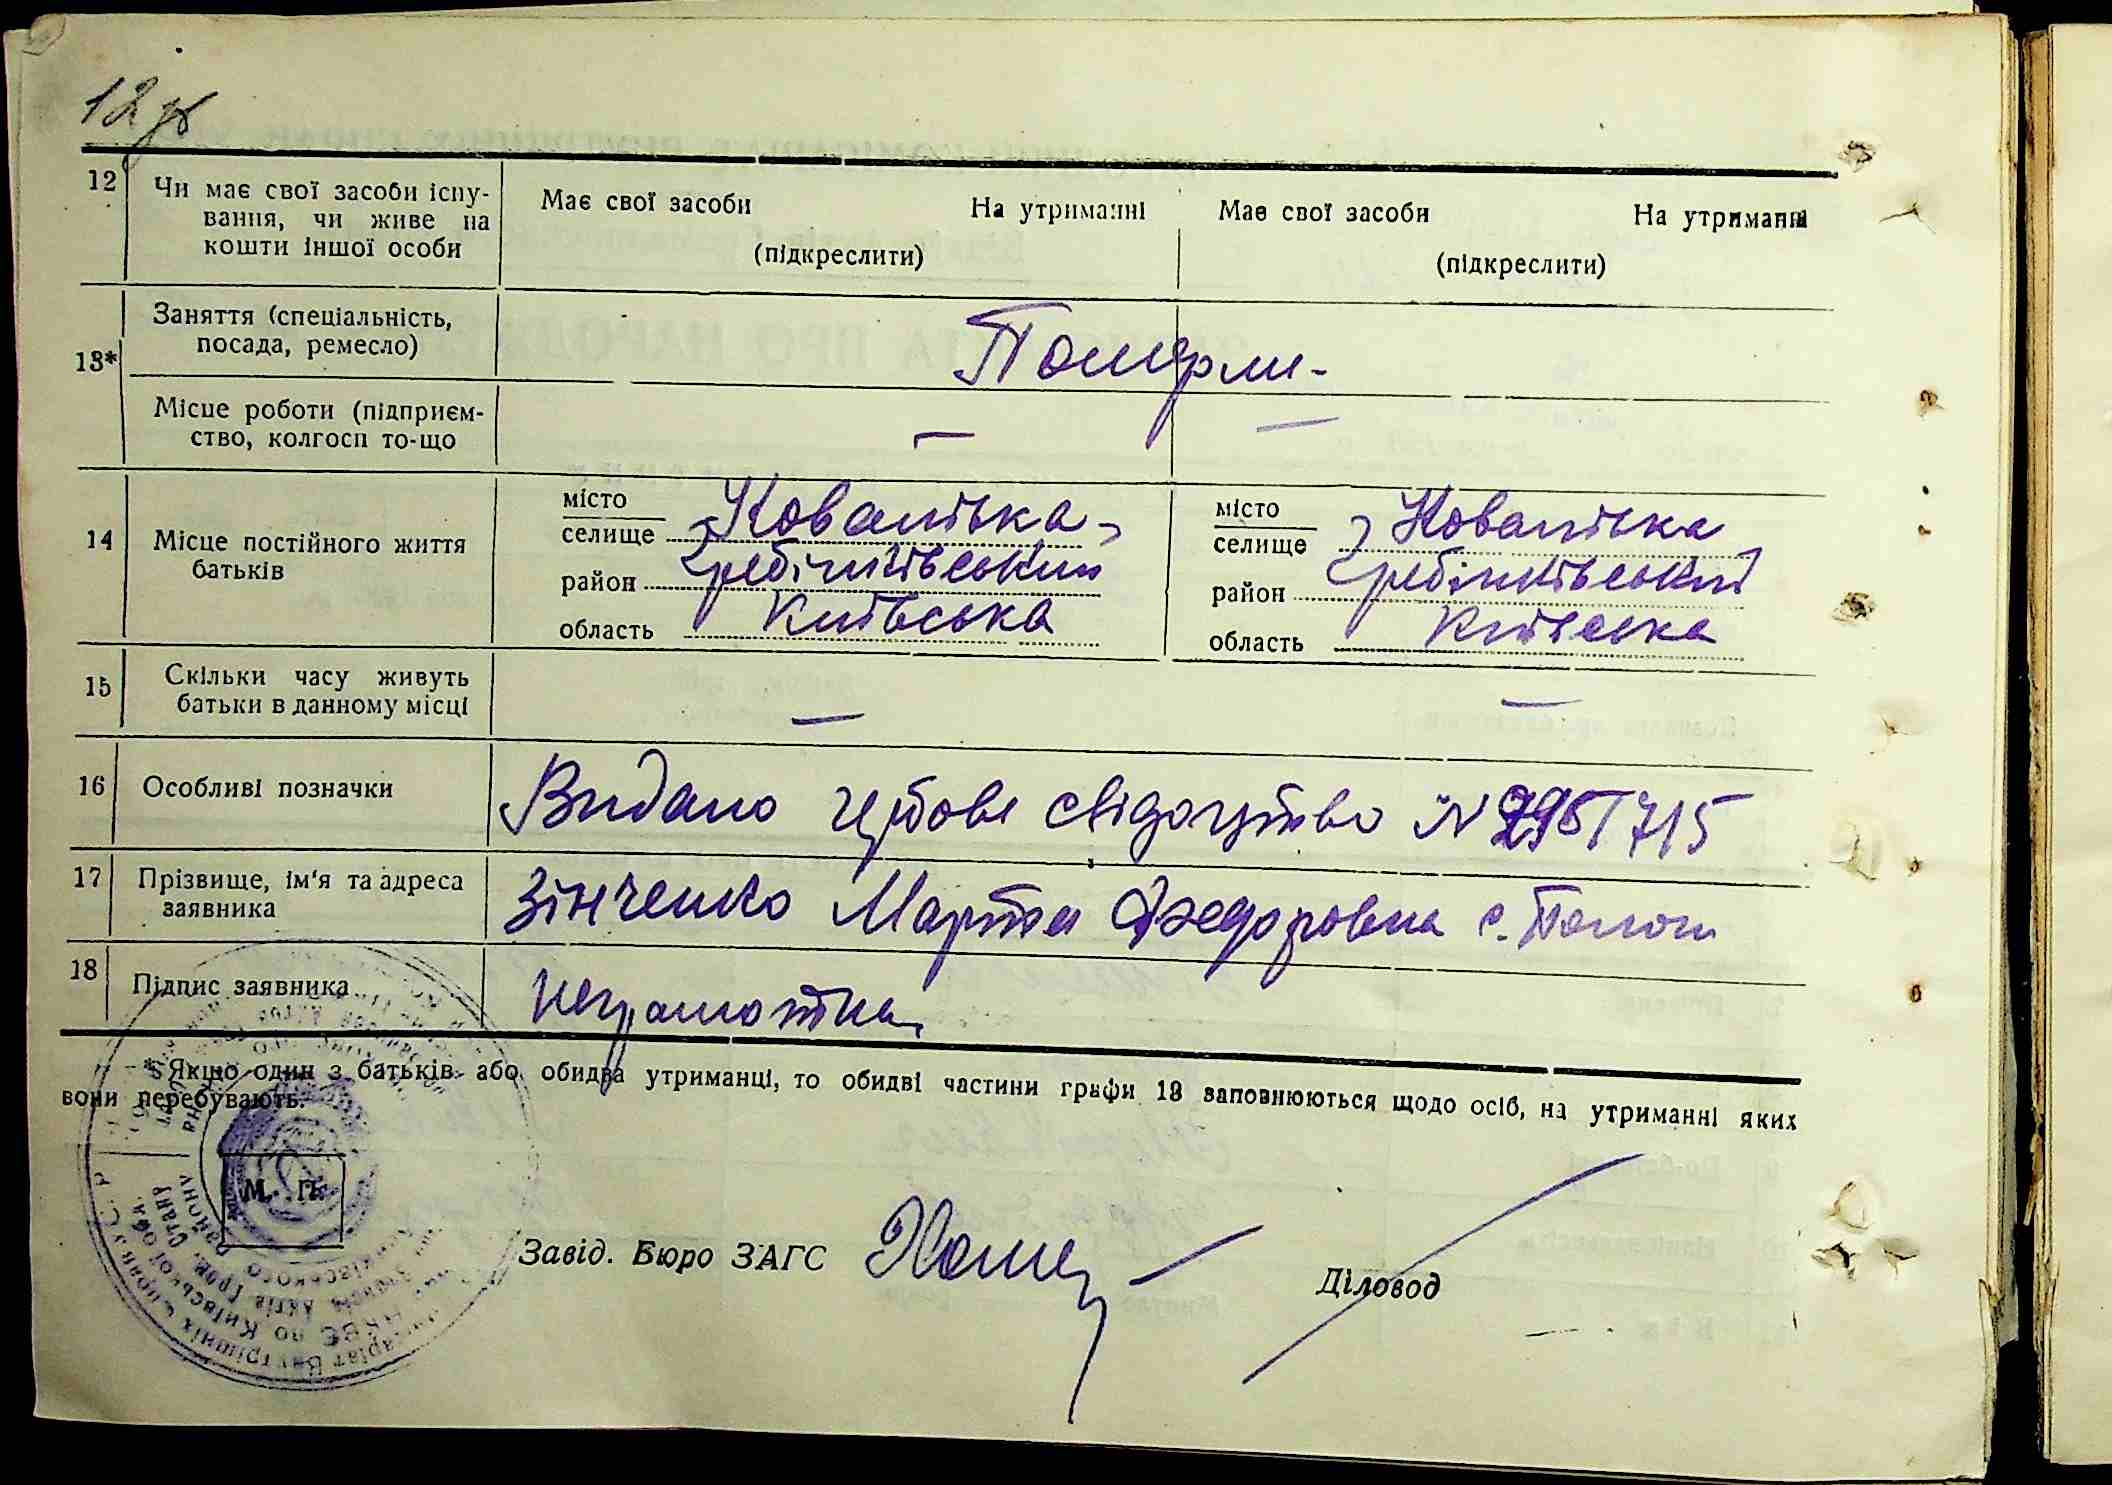 12
12 Чи має свої засоби існу-
вання, чи живе на
кошти іншої особи
Має свої засоби На утриманні
(підкреслити)
Має свої засоби На утриманні
(підкреслити)
13* Заняття (спеціальність,
посада, ремесло)
Померли-
Місце роботи (підприєм-
ство, колгосп то-що
— —
14 Місце постійного життя
батьків
місто
селище Ковалівка,
район Гребінківський
область Київська
місто
селище Ковалівка
район Гребінківський
область Київська
15 Скільки часу живуть
батьки в данному місці
— —
16 Особливі позначки
Видано гербове свідоцтво №
17 Прізвище, ім'я та адреса
заявника
Зінченко Марта Федоровна с.
18 Підпис заявника
неграмотна
* Якщо один з батьків або обидва утриманці, то обидві частини графи 13 заповнюються щодо осіб, на утриманні яких
вони перебувають.
М. П.
Завід. Бюро ЗАГС
Діловод